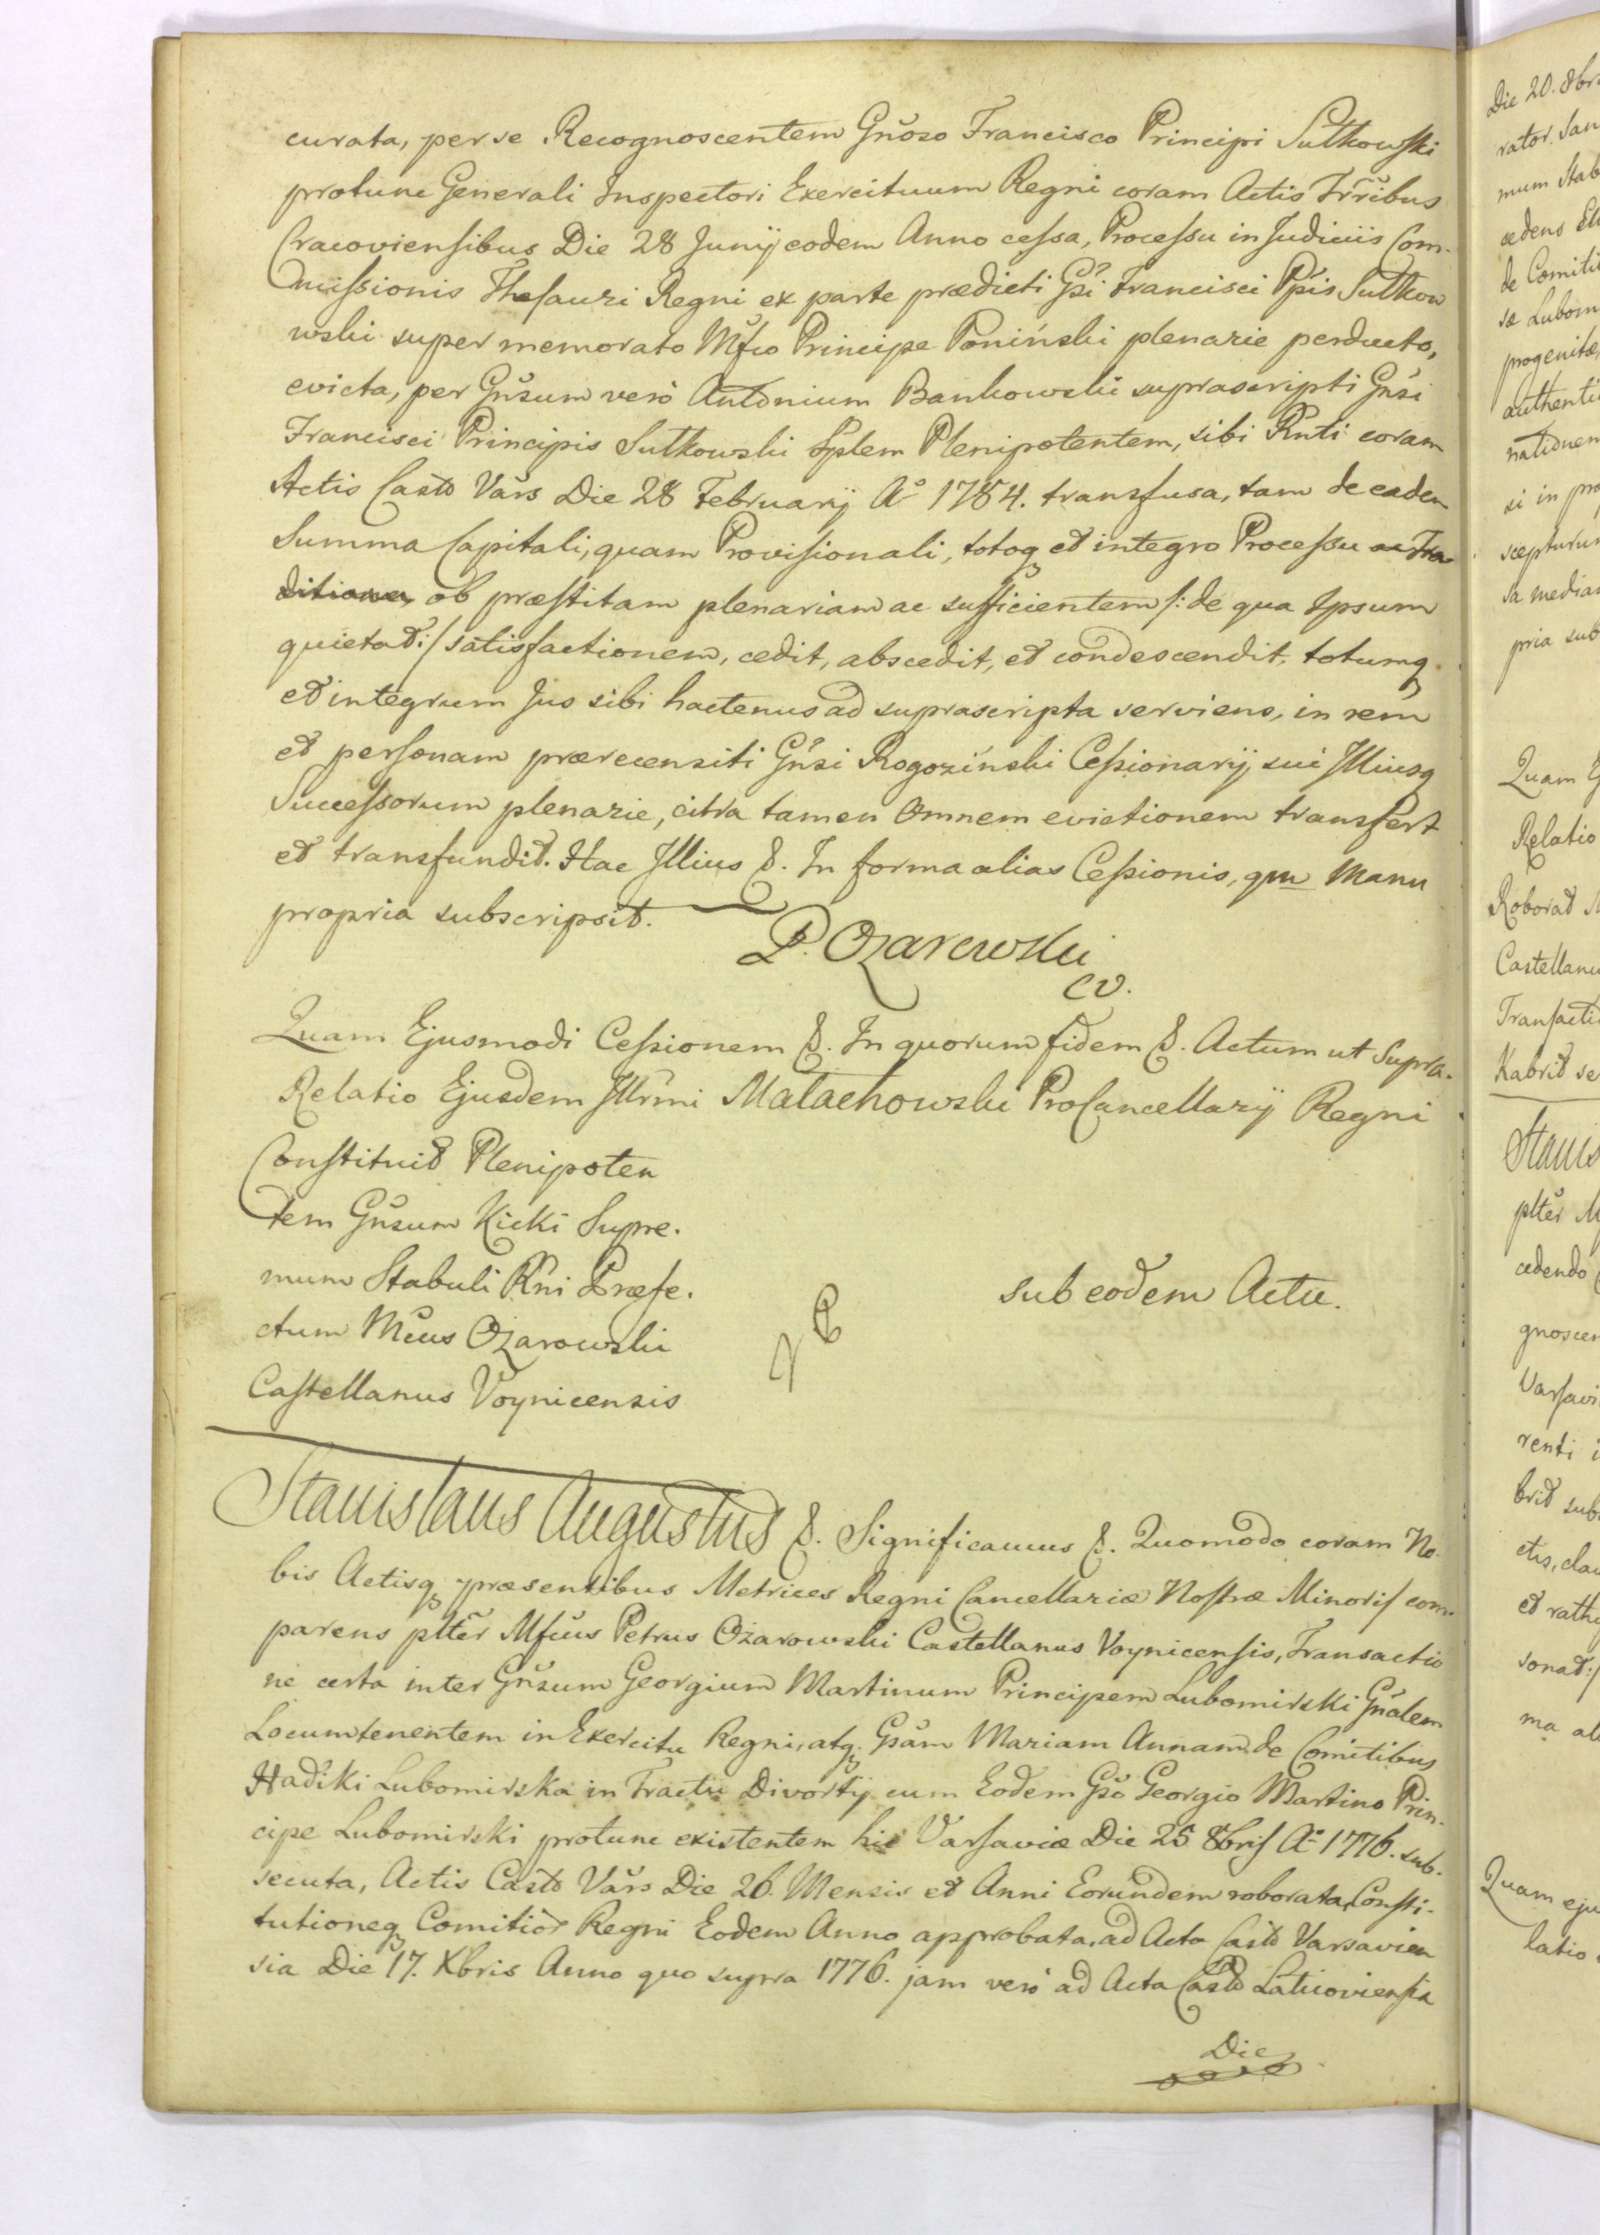 curata, per se Recognoscentem Gnõso Francisco Principi Sułkowski
protunc Generali Inspectori Exercituum Regni coram Actis Trřibus
Cracoviensibus Die 28 Junij eodem Anno cessa, Processu in Judiciis Com-
missionis Thesauri Regni ex parte prædicti Gsi Francisci Ppis Sułkow
wski super memorato Mfco Principe Poniński plenarie perducto,
evicta, per Gnsum verò Antonium Bankowski suprascripti Gnsi
Francisci Principis Sułkowski Splem Plenipotentem, sibi Rnti coram
Actis Casto Vărs Die 28 Februarij A° 1784. transfusa, tam de eadem
Summa Capitali, quam Provisionali, totoq et integro Processu ac Tra
ditione, ob præstitam plenariam ac sufficientem /: de qua Ipsum
quietat :/ satisfactionem, cedit, abscedit, et condescendit, totumq
et integrum Jus sibi hactenus ad suprascripta serviens, in rem
et personam prærecensiti Gnsi Rogoziński Cessionarij, sui Illiusq
Successorum plenarie, citra tamen omnem evictionem transfert
et transfundit. Hac Illius &. In forma alias Cessionis, qm Manu
propria subscripsit.
P. Ożarowski
CV.
Quam Ejusmodi Cessionem &. In quorum fidem &. Actum ut Supra.
Relatio Ejusdem Illrmi Małachowski ProCancellarij Regni
Constituit Plenipoten
tem Gnsum Kicki Supre.
mum Stabuli Rni Præfe.
ctum Mcus Ożarowski
Castellanus Voynicensis
sub eodem Actu.
Stanislaus Augustus &. Significamus &. Quomodo coram No.
bis Actisq præsentibus Metrices Regni Cancellariæ Nostræ Minoris com.
parens plter Mfcus Petrus Ożarowski Castellanus Voynicensis, Transactio
ne certa inter Gnsum Georgium Martinum Principem Lubomirski Gnalem
Locumtenentem in Exercitu Regni, atq Gsam Mariam Annam de Comitibus
Hadiki Lubomirska in Tractu Divortij cum Eodem Gso Georgio Martino Prin-
cipe Lubomirski protunc existentem hic Varsaviæ Die 25 8bris A° 1776. sub.
secuta, Actis Casto Vărs Die 26. Mensis et Anni Eorundem roborata, Consti-
tutioneq Comitior Regni Eodem Anno approbata, ad Acta Casto Varsavien
sia Die 17. Xbris Anno quo supra 1776. jam verò ad Acta Casto Laticoviensia
Die
Die 20. 8br
rator San
mum Stab
cedens
de Comiti
sæ Lubom
progenitæ,
authenti
nationem
si in pro
scepturu
sa median
pria sub
Quam
Relatio
Roborat
Castellanu
Transacti
Kabrit se
Stanis
plter M
cedendo
gnoscen
Varsavi
renti
brit sub
ctis, clau
et rath
sonat :/
ma al
Quam eju
latio